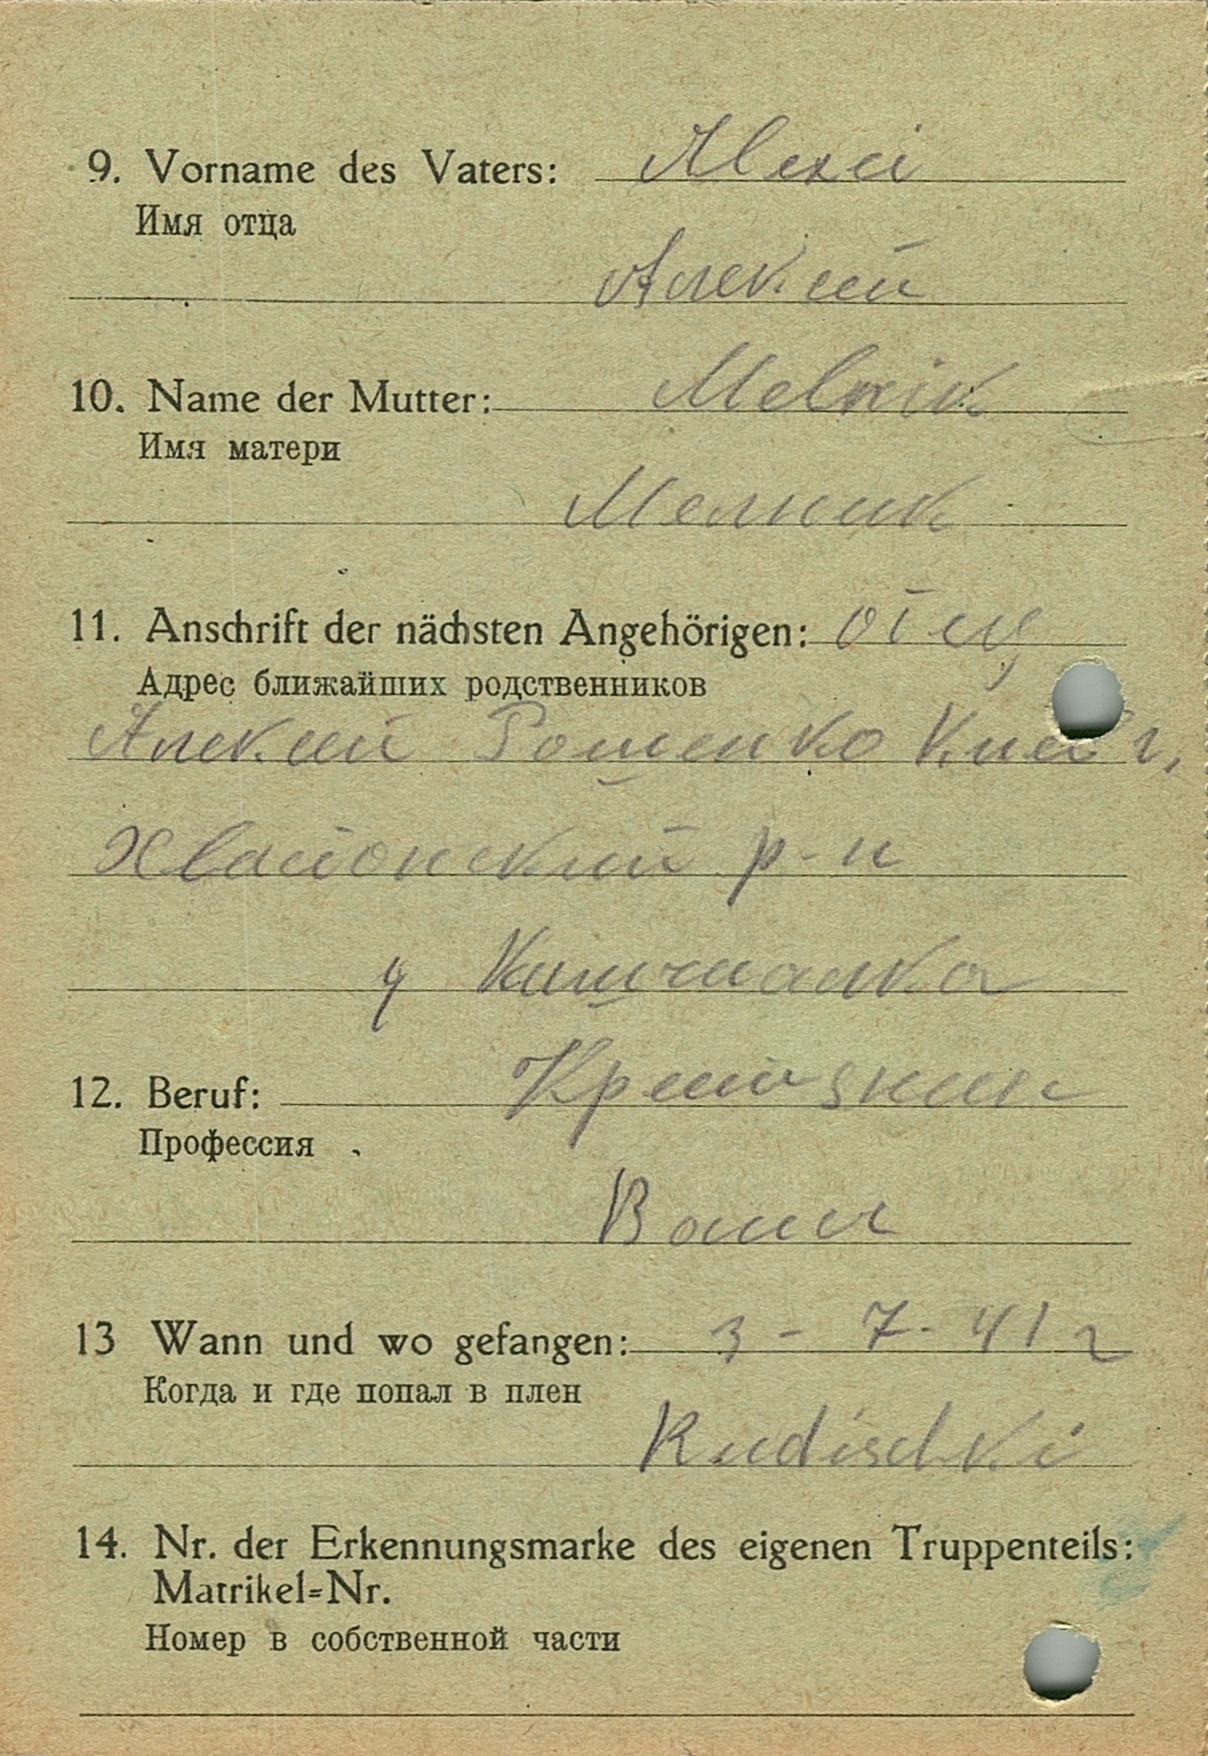 9. Vorname des Vaters: Alexei
Имя отца
Алексей
10. Name der Mutter: Melnik
Имя матери
Мелник
11. Anschrift der nächsten Angehörigen: отец
Адрес ближайших родственников
Алексей Рошенко Киев г,
р-н
12. Beruf:
Профессия
Bauer
13 Wann und wo gefangen: 3 - 7. 41 г
Когда и где попал в плен
Rudischki
14. Nr. der Erkennungsmarke des eigenen Truppenteils:
Matrikel=Nr.
Номер в собственной части